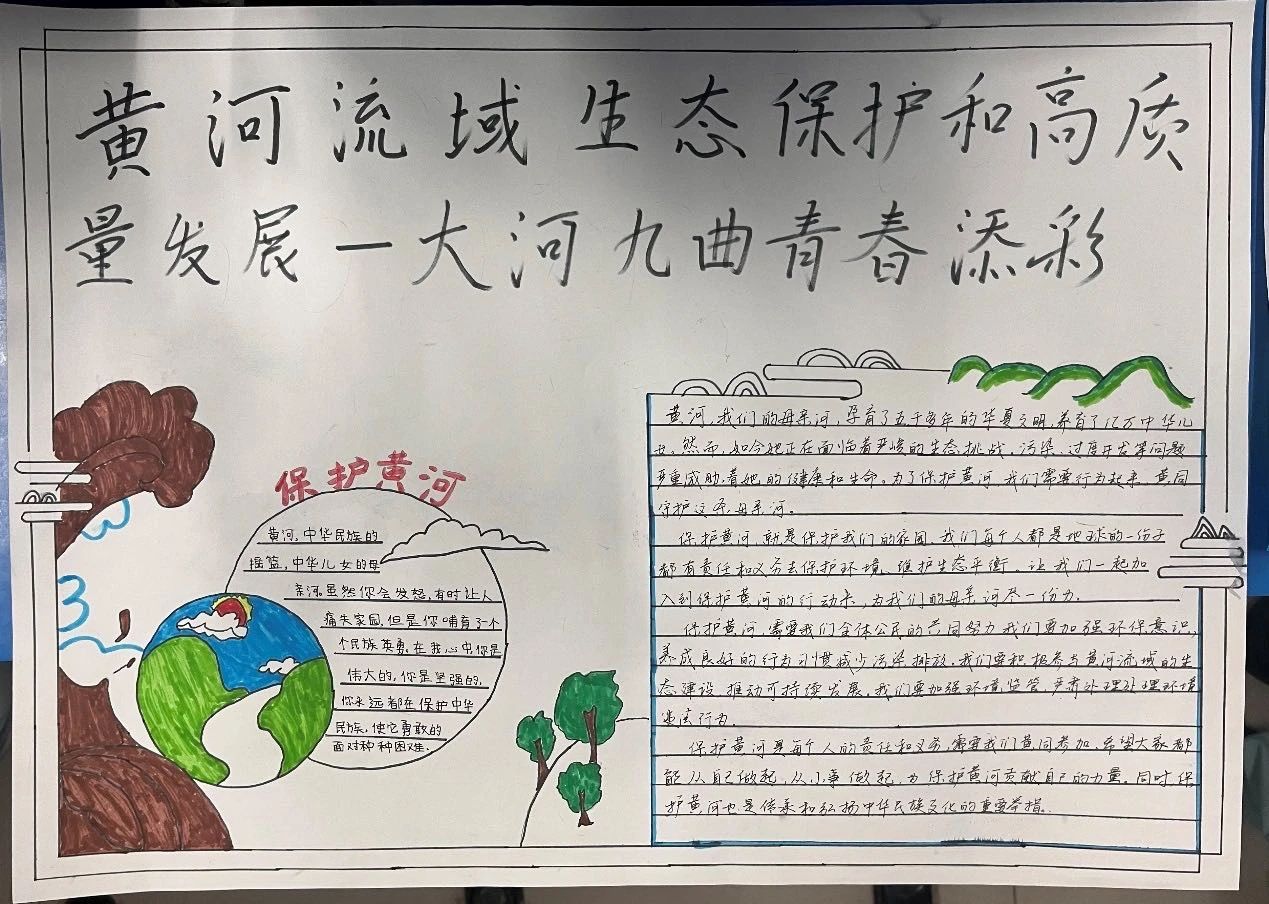 黄河流域生态保护和高质
量发展一大河九曲青春添彩
保护黄河
黄河，中华民族的
摇篮，中华儿女的母
亲河。虽然你会发怒，有时让人
痛失家园，但是你哺育了一个
个民族英勇。在我心中，你是
伟大的，你是坚强的，
你永远都在保护中华
民族，使它勇敢的
面对种种困难.
黄河，我们的母亲河，孕育了五千多年的华夏文明，养育了亿万中华儿
女。然而，如今她正在面临着严峻的生态挑战，污染、过度开发等问题
严重威胁着她的健康和生命。为了保护黄河，我们需要行为起来，黄同
守护这条母亲河。
保护黄河，就是保护我们的家园，我们每个人都是地球的一份子
都有责任和义务去保护环境、维护生态平衡，让我们一起加
入到保护黄河的行动来，为我们的母亲河尽一份力。
保护黄河，需要我们全体公民的共同努力我们要加强环保意识，
养成良好的行为习惯减少污染排放，我们要积极参与黄河流域的生
态建设，推动可持续发展，我们要加强环境监管，严肃处理处理环境
违法行为。
保护黄河是每个人的责任和义务，需要我们黄同参加，希望大家都
能从自己做起，从小事做起，为保护黄河贡献自己的力量。同时，保
护黄河也是传承和弘扬中华民族文化的重要举措。